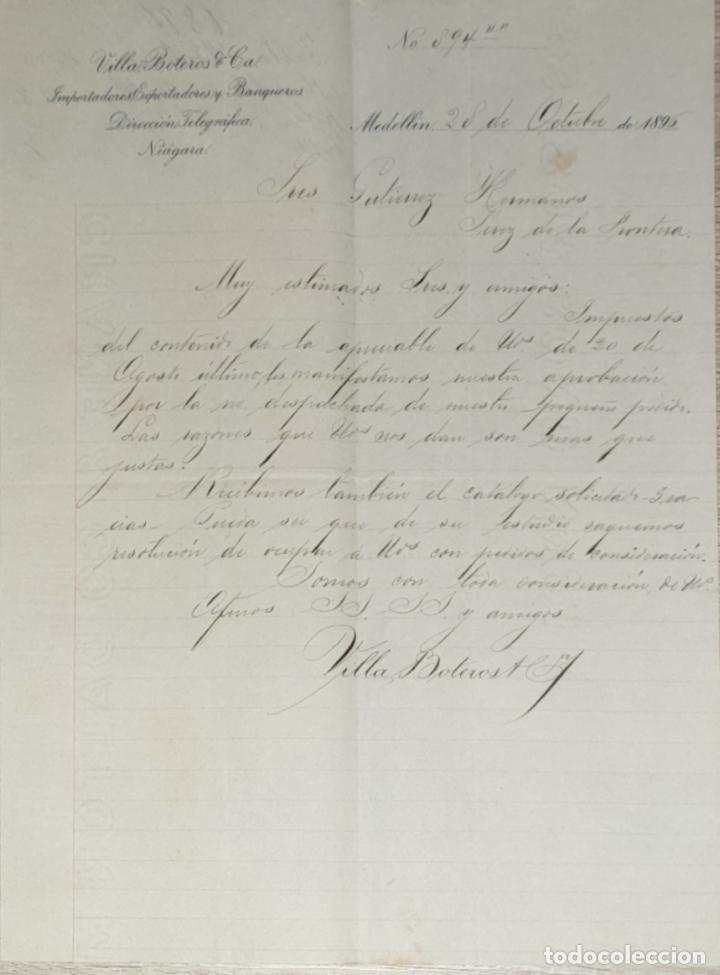 No. 894
Villa, Boteros & Ca.
Importadores, Exportadores y Banqueros
Dirección Telegráfica:
Niágara.
Medellín, 28 de Octubre de 1895
Sres Gutierrez Hermanos
Jerez de la Frontera.
Muy estimados Sres. y amigos:
Impuestos
del contenido de la apreciable de Uds de 20 de
Agosto último, les manifestamos nuestra aprobación
por la no despachada de nuestro pequeño pedido.
Las razones que Uds nos dan son mas que
justas.
Recibimos también el catálogo solicitado. Gra-
cias. Pueda ser que de su estudio saquemos
resolución de ocupar á Uds con pedidos de consideración.
Somos con toda consideración, de Uds.
Afmos SS. SS. y amigos
Villa, Boteros & Ca
todocoleccion